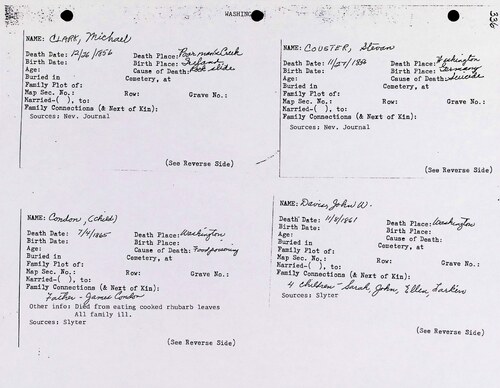 WASHING
336
NAME: CLARK, Michael
Death Date: 12/26/1856 Death Place: Poorman's Creek
Birth Date: Birth Place: Ireland
Age: Cause of Death: Rock slide
Buried in Cemetery, at
Family Plot of:
Map Sec. No.: Row: Grave No.:
Married-( ), to:
Family Connections (& Next of Kin):
Sources: Nev. Journal
(See Reverse Side)
NAME: COUSTER, Stevan
Death Date: 11/27/ Death Place: Washington
Birth Date: Birth Place: Germany
Age: Cause of Death: Suicide
Buried in Cemetery, at
Family Plot of:
Map Sec. No.: Row: Grave No.:
Married-( ), to:
Family Connections (& Next of Kin):
Sources: Nev. Journal
(See Reverse Side)
NAME: Condon, (Child)
Death Date: 7/4/1865 Death Place: Washington
Birth Date: Birth Place:
Age: Cause of Death: Food poisoning
Buried in Cemetery, at
Family Plot of:
Map Sec. No.: Row: Grave No.:
Married-( ), to:
Family Connections (& Next of Kin):
Father - James Condon
Other info: Died from eating cooked rhubarb leaves
All family ill.
Sources: Slyter
(See Reverse Side)
NAME: Davis, John W.
Death Date: 11/8/1861 Death Place: Washington
Birth Date: Birth Place:
Age: Cause of Death:
Buried in Cemetery, at
Family Plot of:
Map Sec. No.: Row: Grave No.:
Married-( ), to:
Family Connections (& Next of Kin):
4 children - Sarah, John, Ellen, Larkin
Sources: Slyter
(See Reverse Side)